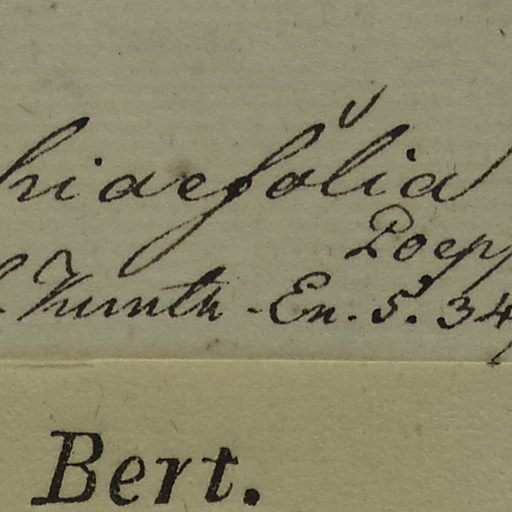 hiaefolia
Poepp
Kunth. En. 5. 34
Bert.